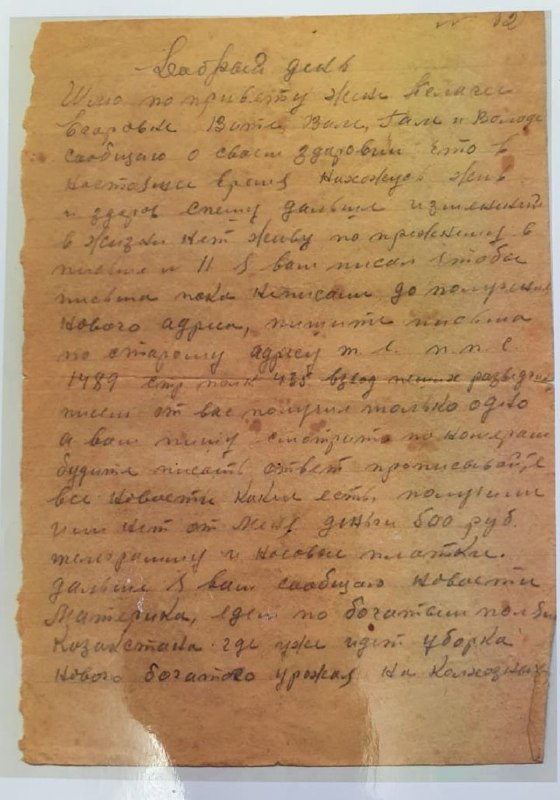 № 12
Добрый день
Шлю по привету жене Пелагее
Егоровне Вите, Вале, Гале и Володе
сообщаю о своем здоровии что в
настоящее время нахожусь жив
и здоров спешу дальше изменений
в жизни нет живу по прежнему в
письме № 11 я вам писал чтобы
письма пока неписали до получения
нового адреса, пишите письма
по старому адресу т. е. п. п. с
1489 стр полк 435 взвод пеших разведчик
писем от вас получил только одно
а вам пишу смотрите по номерам
будите писать ответ прописывайте
все новости какие есть, получили
или нет от меня деньги 500 руб.
телеграмму и носовые платки.
дальше я вам сообщаю новости
Материка, едем по богатым полям
Казакстана где уже идет уборка
нового богатого урожая на колхозных